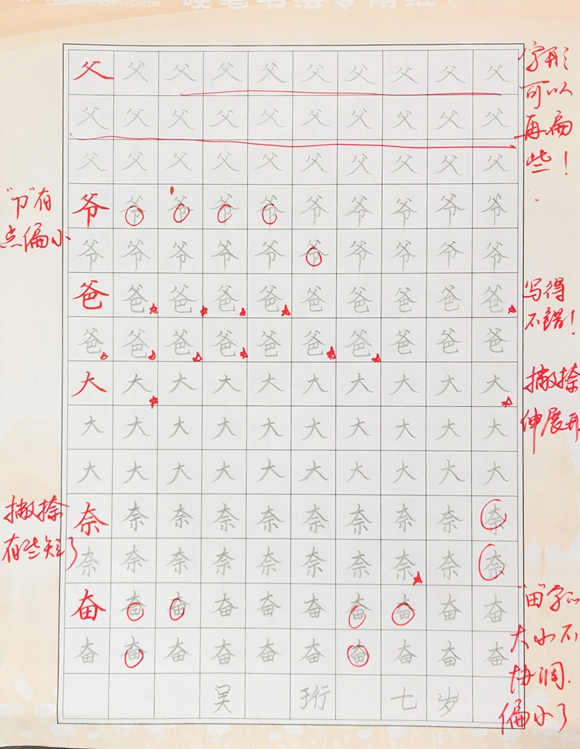 父父父父父父父父父父
父父父父父父父父父父
父父父父父父父父父父
字形
可以
再扁
些！
爷爷爷爷爷爷爷爷爷爷
爷爷爷爷爷爷爷爷爷爷
"卩"有
点偏小
爸爸爸爸爸爸爸爸爸爸
爸爸爸爸爸爸爸爸爸爸
写得
不错！
大大大大大大大大大大
大大大大大大大大大大
大大大大大大大大大大
撇捺
伸展开
奈奈奈奈奈奈奈奈奈奈
奈奈奈奈奈奈奈奈奈奈
撇捺
有些短了
奋奋奋奋奋奋奋奋奋奋
奋奋奋奋奋奋奋奋奋奋
"田"字的
大小不
协调.
偏小了
吴 珩 七岁